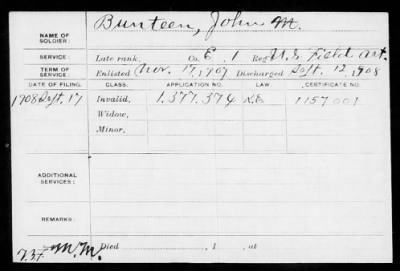 NAME OF SOLDIER: Bunteen, John M.
SERVICE: Late rank, Co. E, 1 Reg't U.S. Field Art.
TERM OF SERVICE: Enlisted Nov. 17, 1907 Discharged Sept. 12, 1908
DATE OF FILING. CLASS. APPLICATION NO. LAW. CERTIFICATE NO.
1908 Sept. 17 Invalid, 1.377.374 1157.001
Widow,
Minor,
ADDITIONAL SERVICES:
REMARKS:
M.M. Died , 1 , at